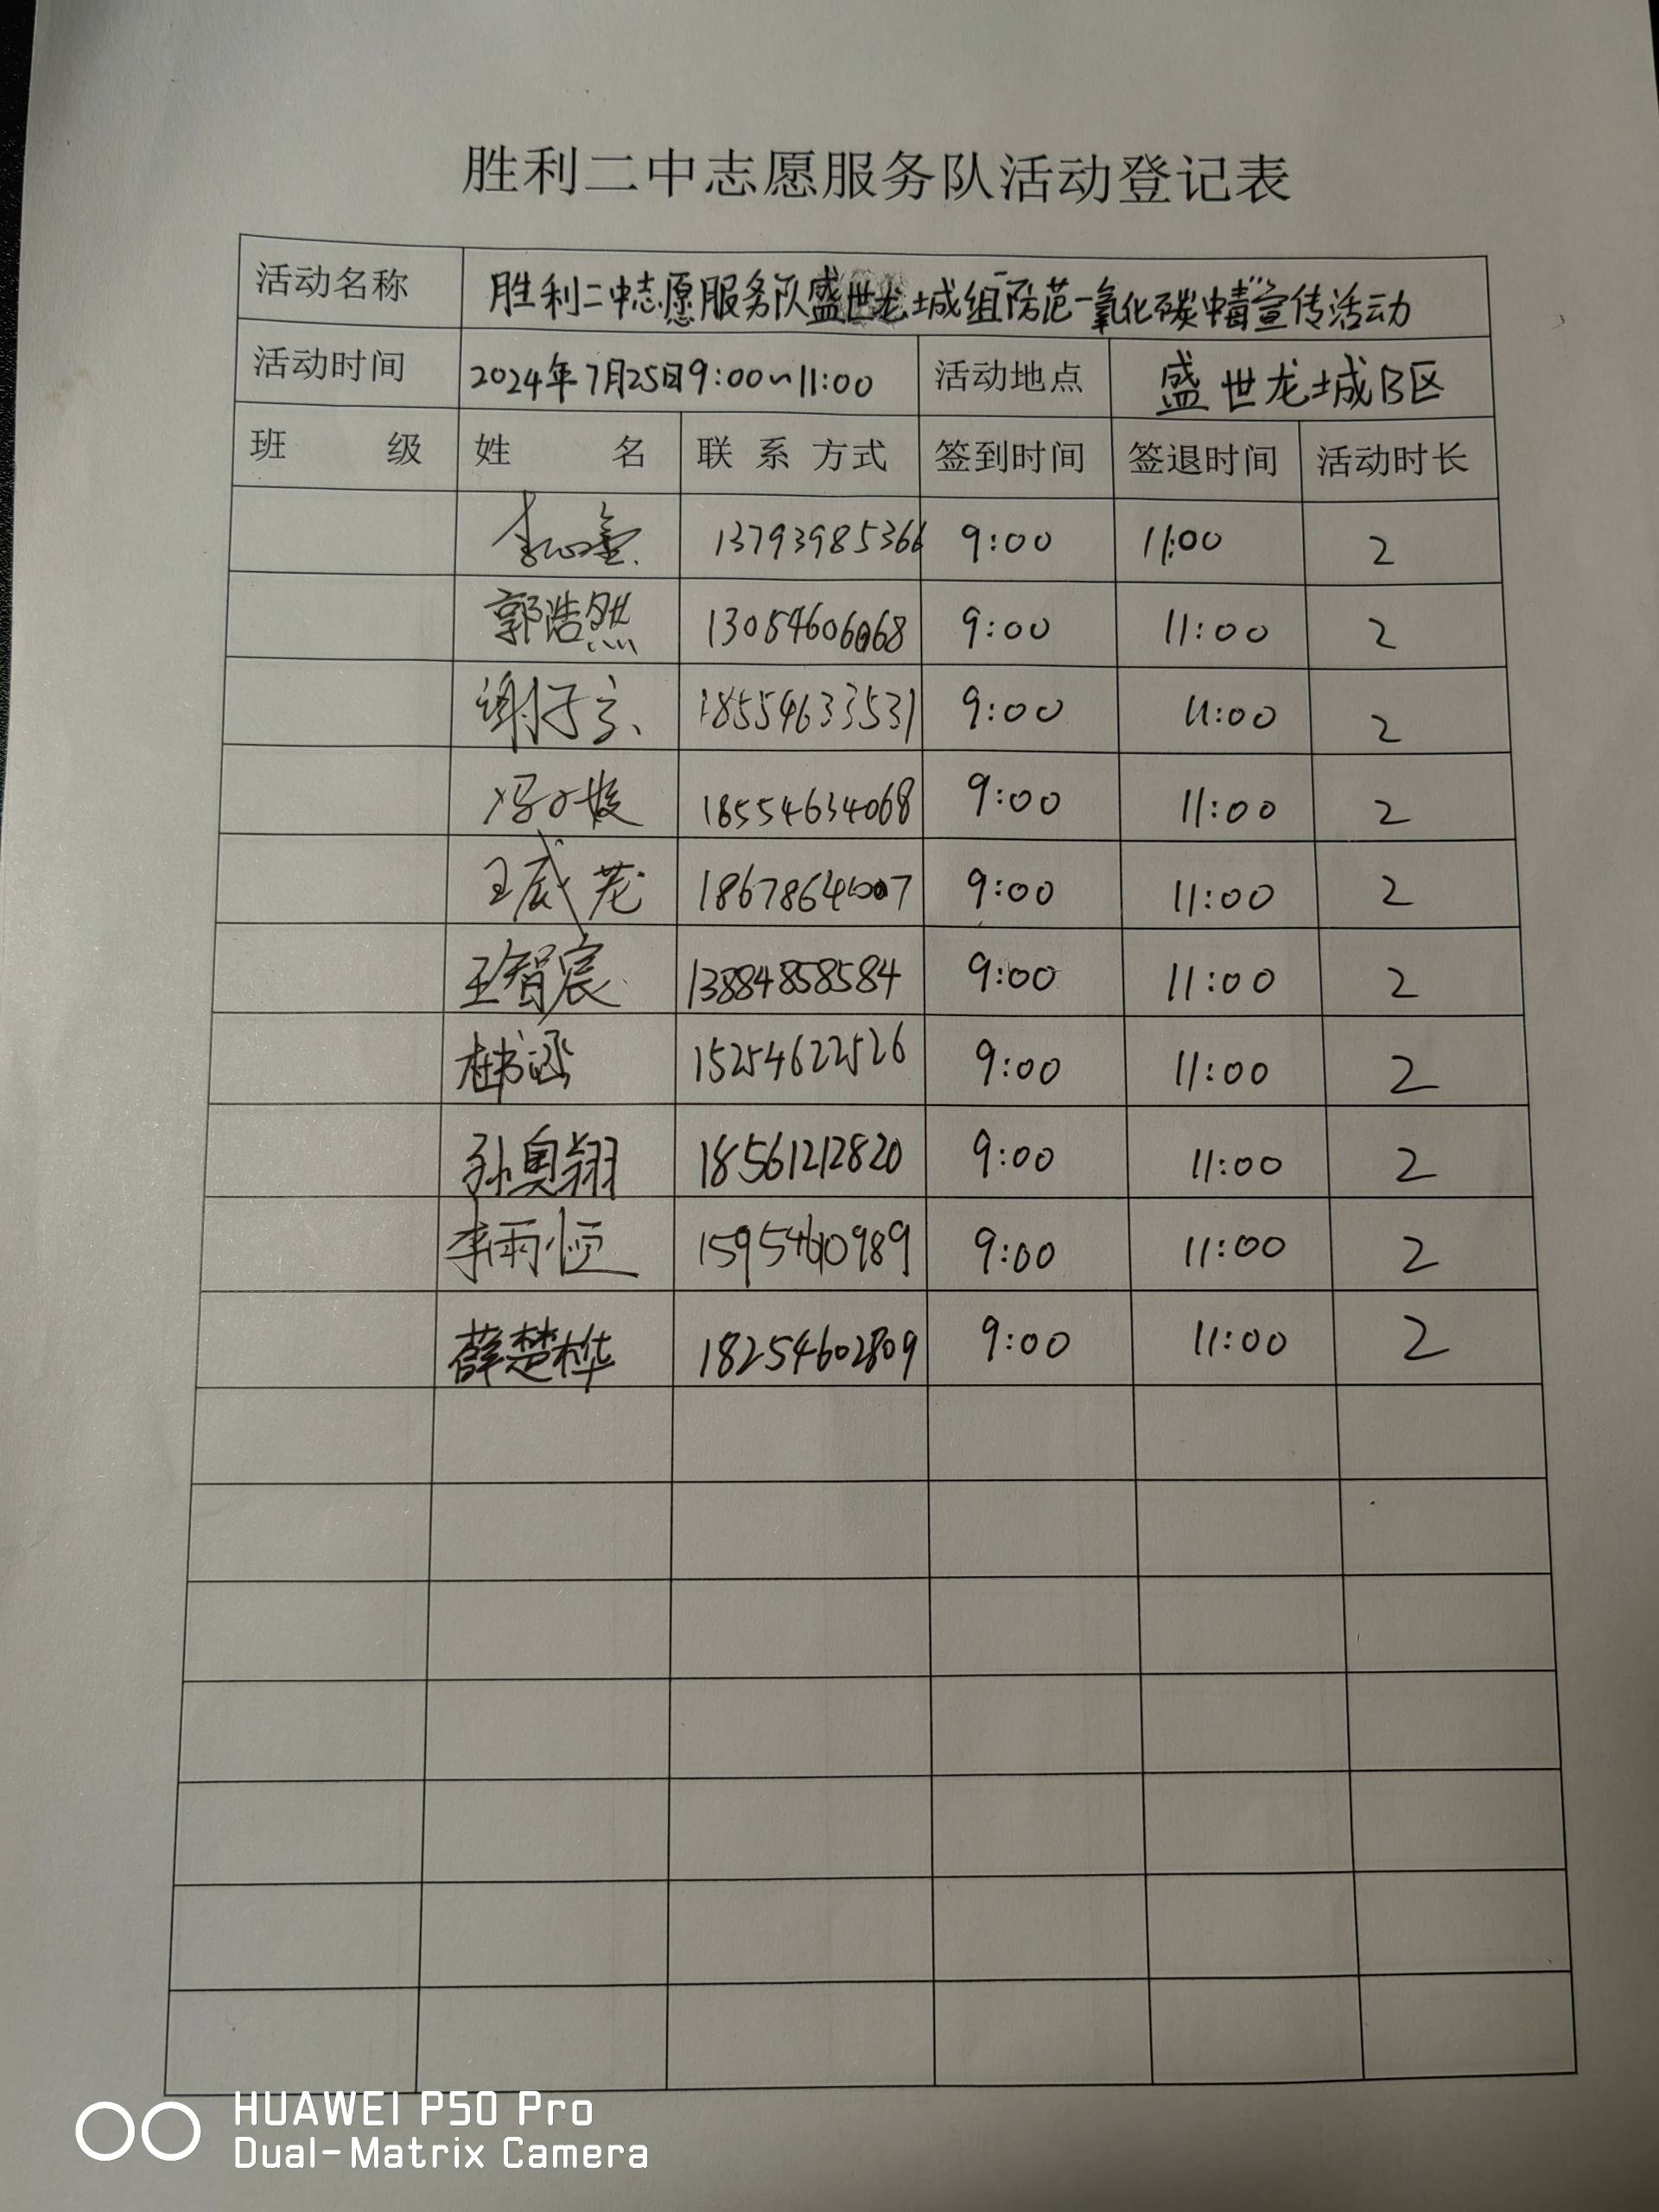 胜利二中志愿服务队活动登记表
活动名称 胜利二中志愿服务队盛世龙城组“防范一氧化碳中毒”宣传活动
活动时间 2024年7月25日9:00~11:00 活动地点 盛世龙城B区
班 级 姓 名 联 系 方式 签到时间 签退时间 活动时长
13793985366 9:00 11:00 2
郭浩然 13054606068 9:00 11:00 2
谢子言 18554633531 9:00 11:00 2
18554634068 9:00 11:00 2
9:00 11:00 2
王智宸 13884858584 9:00 11:00 2
杜书涵 15254622526 9:00 11:00 2
孙奥翔 18561212820 9:00 11:00 2
李雨恒 9:00 11:00 2
薛楚桦 18254602809 9:00 11:00 2
HUAWEI P50 Pro
Dual-Matrix Camera